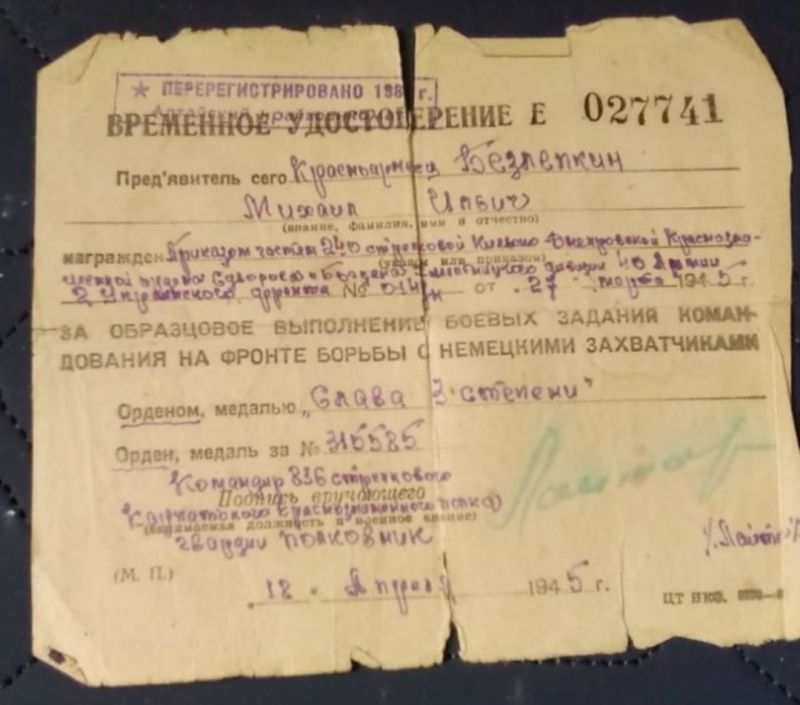 ★ ПЕРЕРЕГИСТРИРОВАНО 198 г.
Алтайский крайвоенкомат
ВРЕМЕННОЕ УДОСТОВЕРЕНИЕ Е 027741
Пред'явитель сего Красноармеец Безлепкин
Михаил Ильич
(звание, фамилия, имя и отчество)
награжден Приказом частям 240 стрелковой Киевско Днепровской Краснозна-
(указом или приказом)
менной ордена Суворова и Богдана Хмельницкого дивизии 40 Армии
2 Украинского фронта № 014/н от „27" марта 1945 г.
ЗА ОБРАЗЦОВОЕ ВЫПОЛНЕНИЕ БОЕВЫХ ЗАДАНИЙ КОМАН-
ДОВАНИЯ НА ФРОНТЕ БОРЬБЫ С НЕМЕЦКИМИ ЗАХВАТЧИКАМИ
Орденом, медалью „Слава 3 степени"
Орден, медаль за № 315585
Командир 836 стрелкового
Подпись вручающего
Карпатского Краснознаменного полка
(занимаемая должность и военное звание)
гвардии полковник
(М. П.)
„12" Апреля 1945 г.
ЦТ НКО.